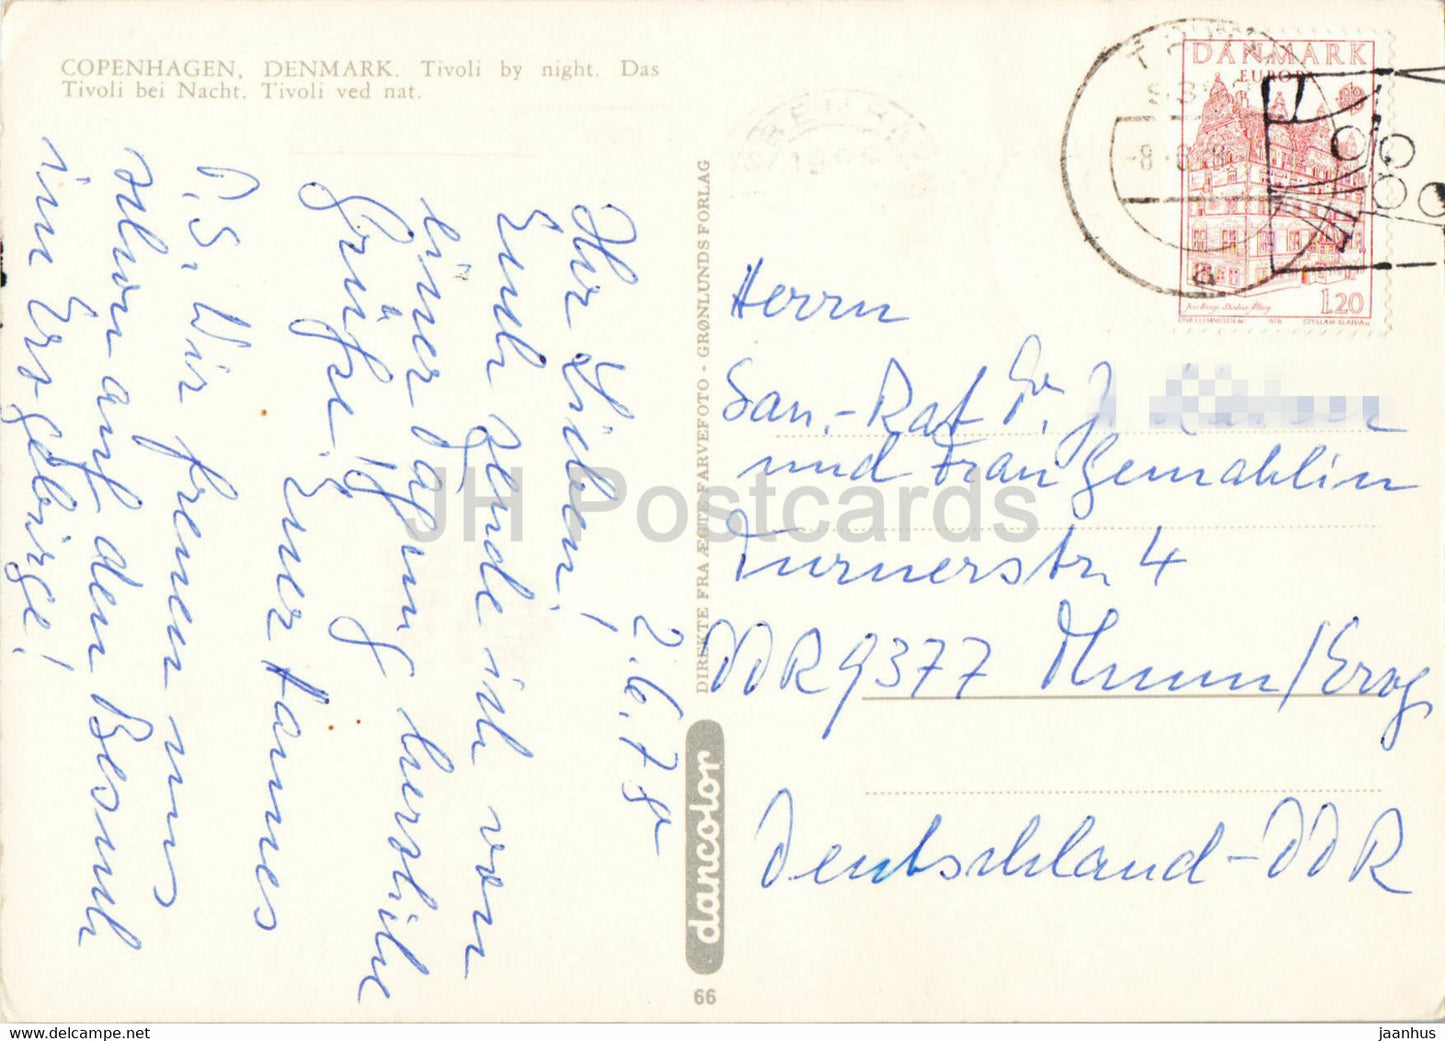 COPENHAGEN, DENMARK. Tivoli by night. Das
Tivoli bei Nacht. Tivoli ved nat.
2.6.78
Ihr Lieben!
Euch sende ich von
einer Tagung herzliche
Grüße! Euer Hannes
P.S. Wir freuen uns
schon auf den Besuch
im Erzgebirge!
DIREKTE FRA ÆGTE FARVEFOTO - GRØNLUNDS FORLAG
dancolor
66
DANMARK
EUROPA
1.20
CZESLAW SLANIA
-8.6.78
Herrn
San.-Rat Dr. J.
und Frau Gemahlin
Turnerstr. 4
DDR 9377 Thum/Erzg
Deutschland-DDR
JH Postcards
www.delcampe.net
jaanhus